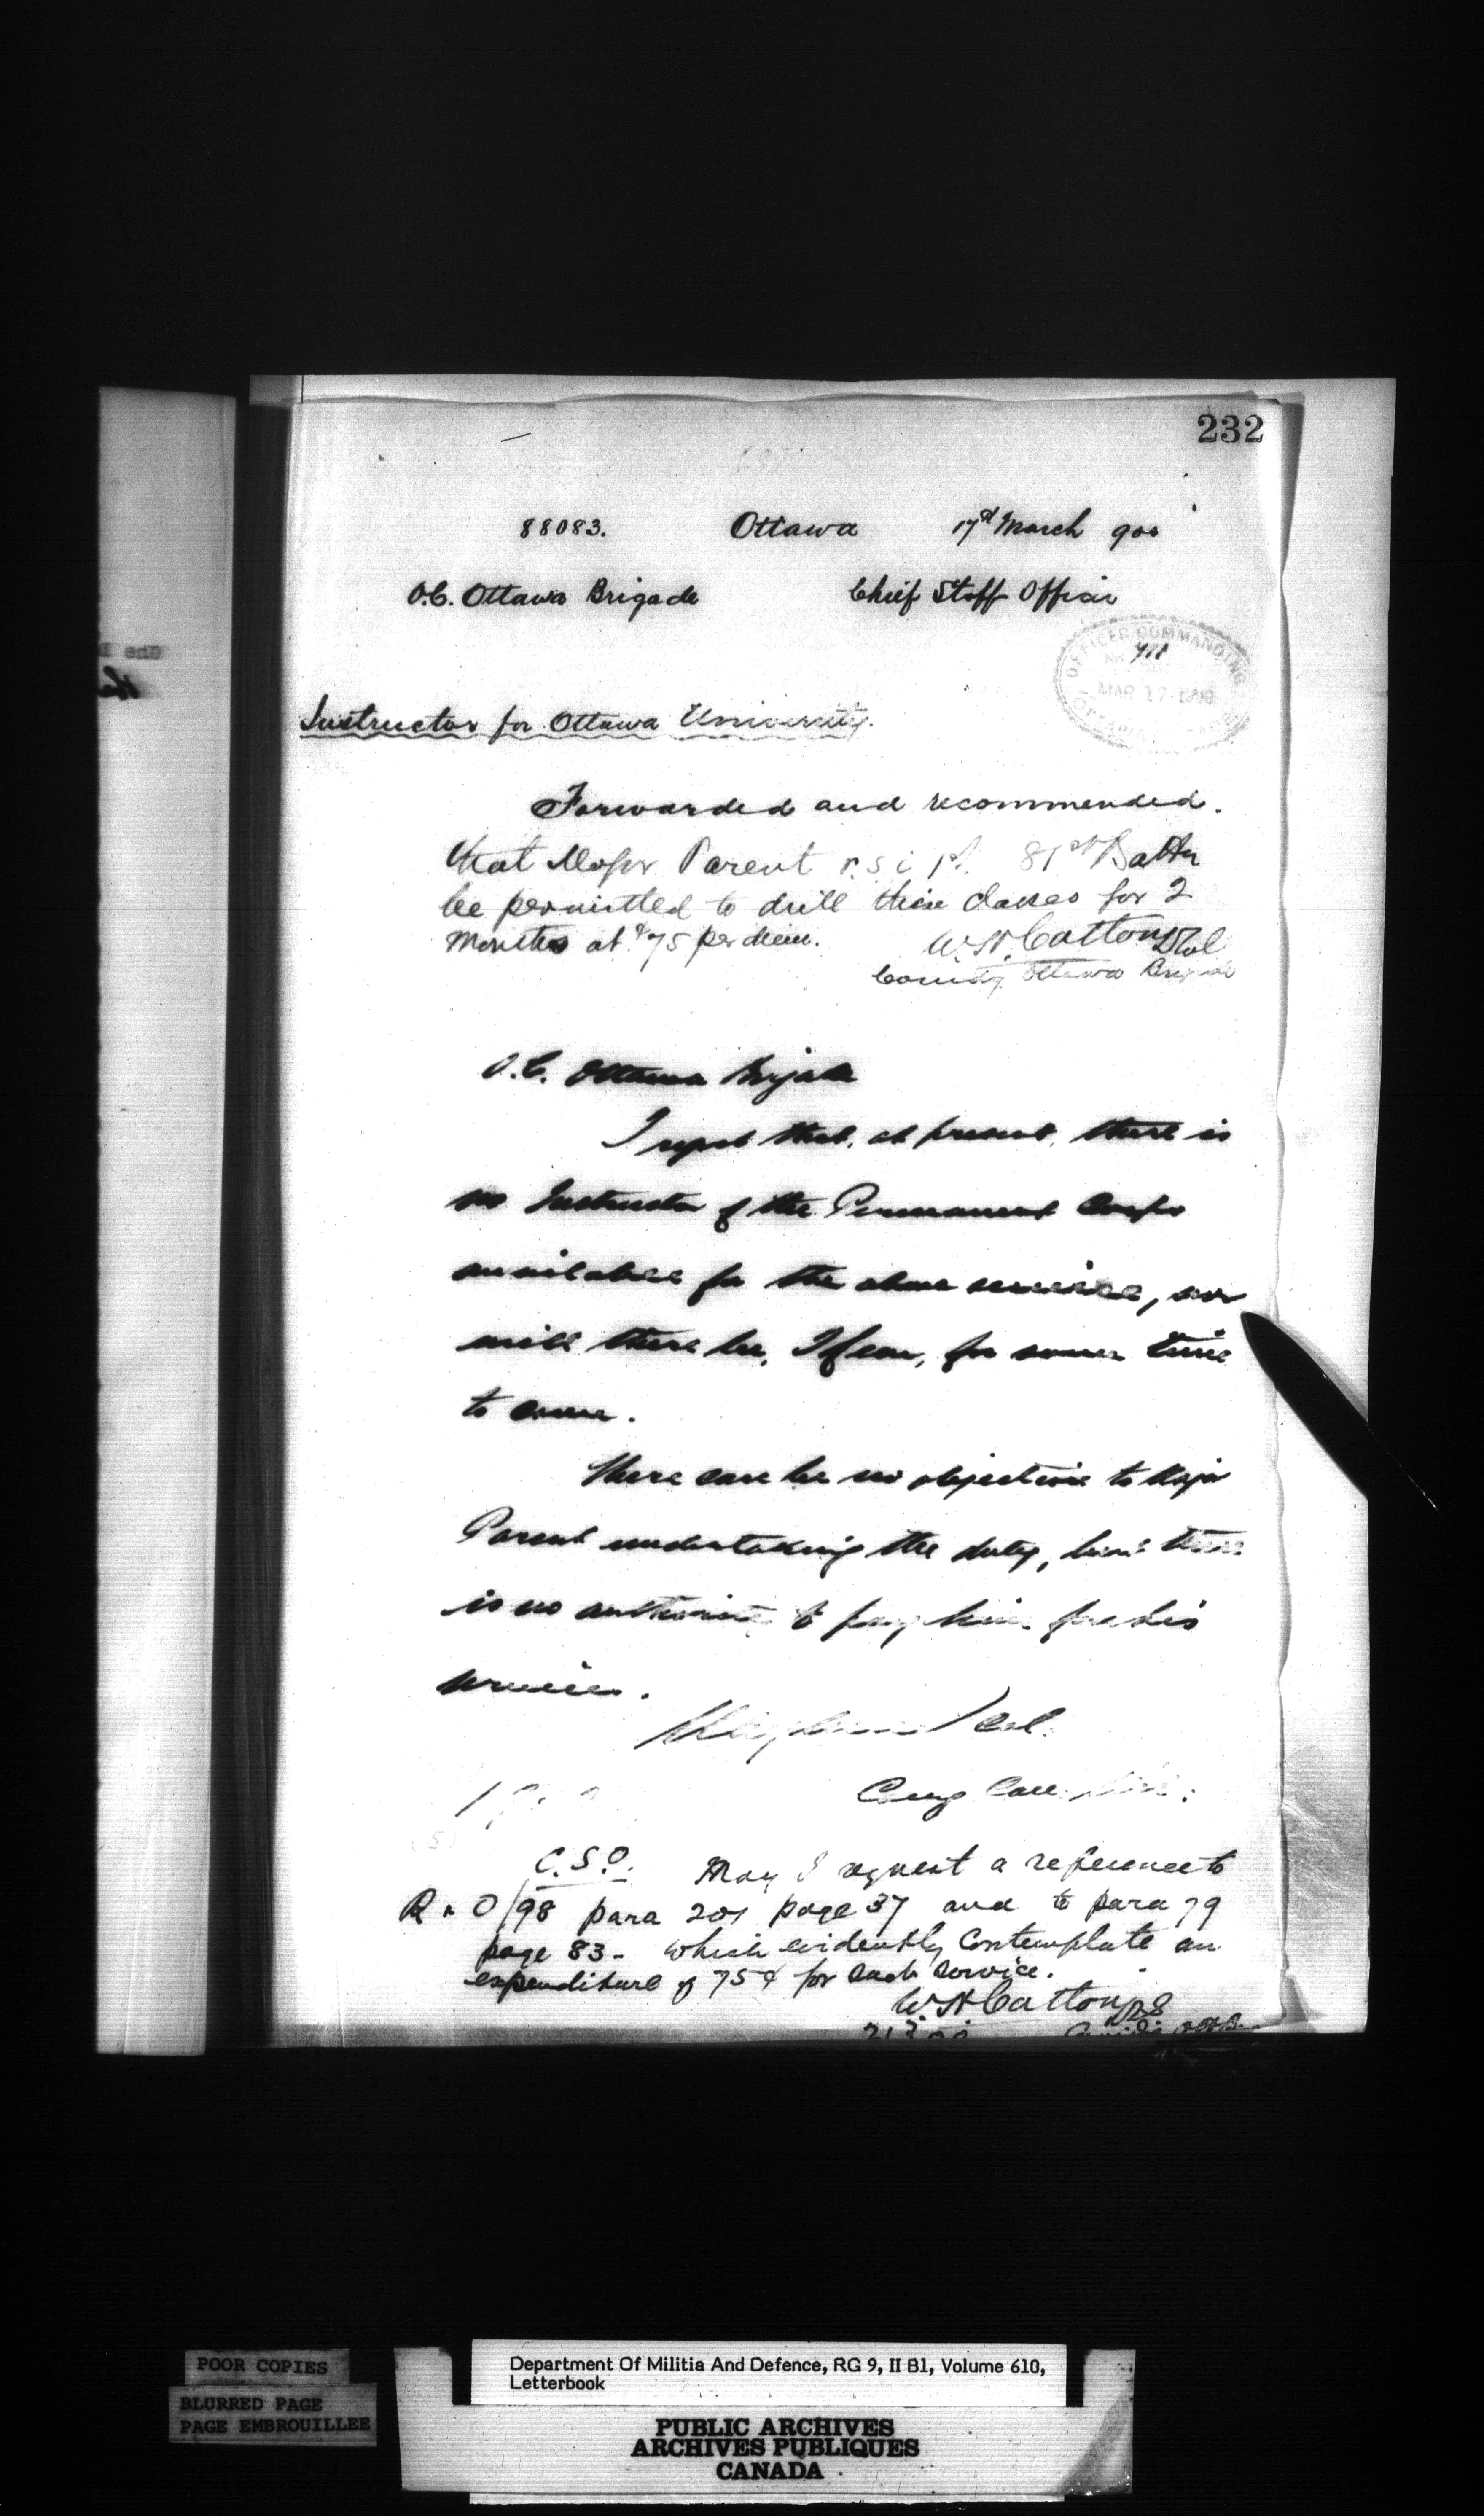 232
88083. Ottawa 17th March 900
O.C. Ottawa Brigade Chief Staff Officer
OFFICER COMMANDING
No 711
MAR 17 1900
OTTAWA
Instructor for Ottawa University.
Forwarded and recommended.
that Major Parent 81st Battn
be permitted to drill these classes for 2
Months at .75 per diem. W.H. Cotton Lt Col
Comdg. Ottawa Brigade
O.C. Ottawa Brigade
I regret that, at present, there is
no Instructor of the Permanent Corps
available for the above service, nor
will there be, I fear, for some time
to come.
There can be no objection to Major
Parent undertaking the duty, but there
is no authority to pay him for his
services.
Col.
C.S.O. May I request a reference to
R & O/98 para 201 page 37 and to para 79
page 83 - which evidently contemplate an
expenditure of 75¢ for such service.
W.H. Cotton
POOR COPIES
BLURRED PAGE
PAGE EMBROUILLEE
Department Of Militia And Defence, RG 9, II B1, Volume 610,
Letterbook
PUBLIC ARCHIVES
ARCHIVES PUBLIQUES
CANADA